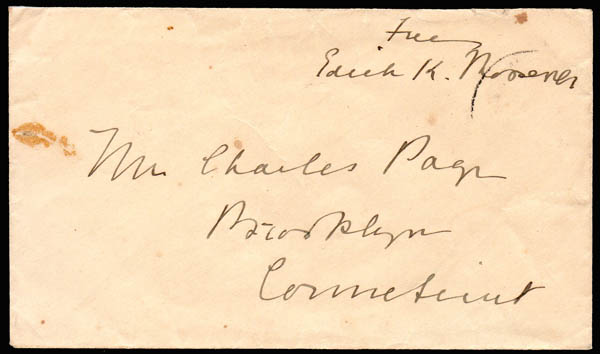 Free
Edith K. Roosevelt
Mr Charles Page
Brooklyn
Connecticut